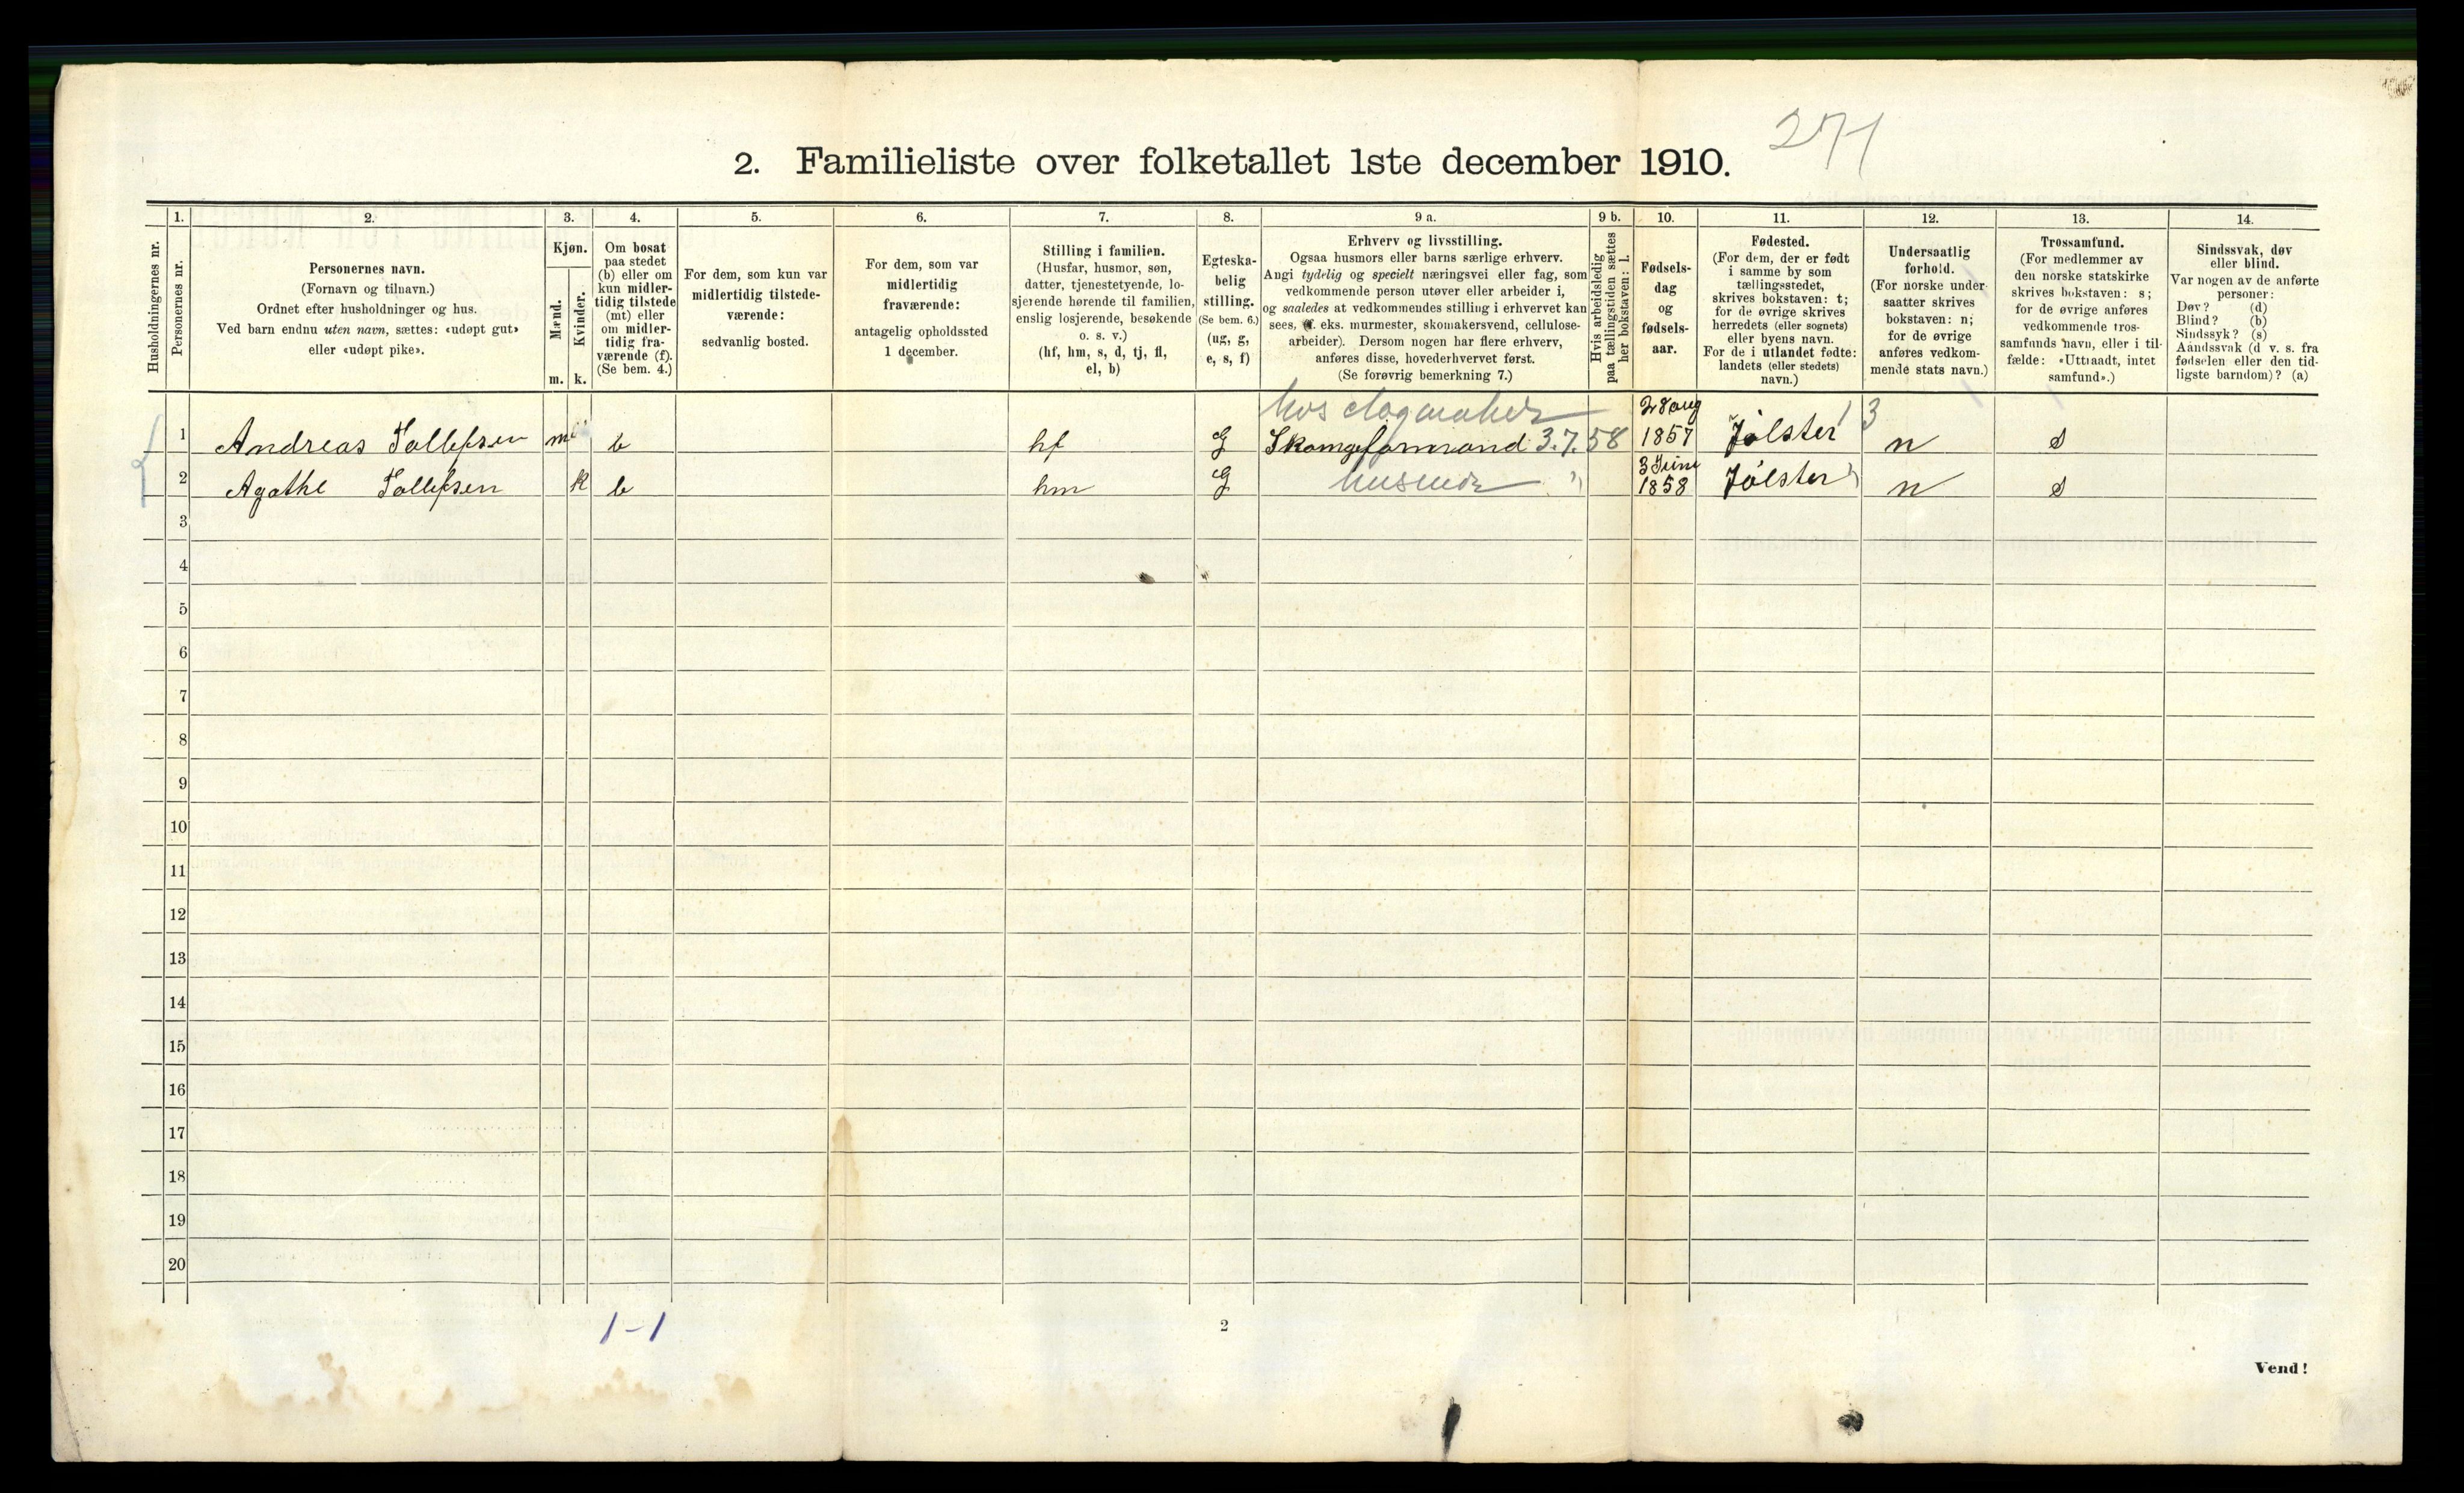 271
2. Familieliste over folketallet 1ste december 1910.
Husholdningernes nr.
1.
Personernes nr.
2.
Personernes navn.
(Fornavn og tilnavn.)
Ordnet efter husholdninger og hus.
Ved barn endnu uten navn, sættes: «udøpt gut»
eller «udøpt pike».
3.
Kjøn.
Mænd.
m.
Kvinder.
k.
4.
Om bosat
paa stedet
(b) eller om
kun midler-
tidig tilstede
(mt) eller
om midler-
tidig fra-
værende (f).
(Se bem. 4.)
5.
For dem, som kun var
midlertidig tilstede-
værende:
sedvanlig bosted.
6.
For dem, som var
midlertidig
fraværende:
antagelig opholdssted
1 december.
7.
Stilling i familien.
(Husfar, husmor, søn,
datter, tjenestetyende, lo-
sjerende hørende til familien,
enslig losjerende, besøkende
o. s. v.)
(hf, hm, s, d, tj, fl,
el, b)
8.
Egteska-
belig
stilling.
(Se bem. 6.)
(ug, g,
e, s, f)
9 a.
Erhverv og livsstilling.
Ogsaa husmors eller barns særlige erhverv.
Angi tydelig og specielt næringsvei eller fag, som
vedkommende person utøver eller arbeider i,
og saaledes at vedkommendes stilling i erhvervet kan
sees, f. eks. murmester, skomakersvend, cellulose-
arbeider). Dersom nogen har flere erhverv,
anføres disse, hovederhvervet først.
(Se forøvrig bemerkning 7.)
9 b.
Hvis arbeidsledig
paa tællingstiden sættes
her bokstaven: l.
10.
Fødsels-
dag
og
fødsels-
aar.
11.
Fødested.
(For dem, der er født
i samme by som
tællingsstedet,
skrives bokstaven: t;
for de øvrige skrives
herredets (eller sognets)
eller byens navn.
For de i utlandet fødte:
landets (eller stedets)
navn.)
12.
Undersaatlig
forhold.
(For norske under-
saatter skrives
bokstaven: n;
for de øvrige
anføres vedkom-
mende stats navn.)
13.
Trossamfund.
(For medlemmer av
den norske statskirke
skrives bokstaven: s;
for de øvrige anføres
vedkommende tros-
samfunds navn, eller i til-
fælde: «Uttraadt, intet
samfund».)
14.
Sindssvak, døv
eller blind.
Var nogen av de anførte
personer:
Døv? (d)
Blind? (b)
Sindssyk? (s)
Aandssvak (d v. s. fra
fødselen eller den tid-
ligste barndom)? (a)
1 Andreas Tollefsen m b hf G hos Skomgeformand 3.7.58 28 aug 1857 Jølster 13 n s
2 Agathe Tollefsen k b hm G " 3 Juni 1858 Jølster n s
3
4
5
6
7
8
9
10
11
12
13
14
15
16
17
18
19
20
1-1
2
Vend!